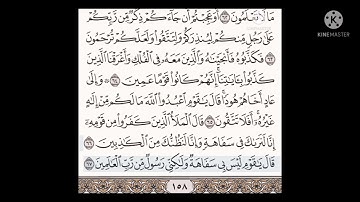 مَا لَا تَعْلَمُونَ ٦٢ أَوَعَجِبْتُمْ أَن جَاءَكُمْ ذِكْرٌ مِّن رَّبِّكُمْ
عَلَىٰ رَجُلٍ مِّنكُمْ لِيُنذِرَكُمْ وَلِتَتَّقُوا وَلَعَلَّكُمْ تُرْحَمُونَ
٦٣ فَكَذَّبُوهُ فَأَنجَيْنَاهُ وَالَّذِينَ مَعَهُ فِي الْفُلْكِ وَأَغْرَقْنَا الَّذِينَ
كَذَّبُوا بِآيَاتِنَا إِنَّهُمْ كَانُوا قَوْمًا عَمِينَ ٦٤ وَإِلَىٰ
عَادٍ أَخَاهُمْ هُودًا قَالَ يَا قَوْمِ اعْبُدُوا اللَّهَ مَا لَكُم مِّنْ إِلَٰهٍ
غَيْرُهُ أَفَلَا تَتَّقُونَ ٦٥ قَالَ الْمَلَأُ الَّذِينَ كَفَرُوا مِن قَوْمِهِ
إِنَّا لَنَرَاكَ فِي سَفَاهَةٍ وَإِنَّا لَنَظُنُّكَ مِنَ الْكَاذِبِينَ
٦٦ قَالَ يَا قَوْمِ لَيْسَ بِي سَفَاهَةٌ وَلَٰكِنِّي رَسُولٌ مِّن رَّبِّ الْعَالَمِينَ ٦٧
١٥٨
Made with
KINEMASTER